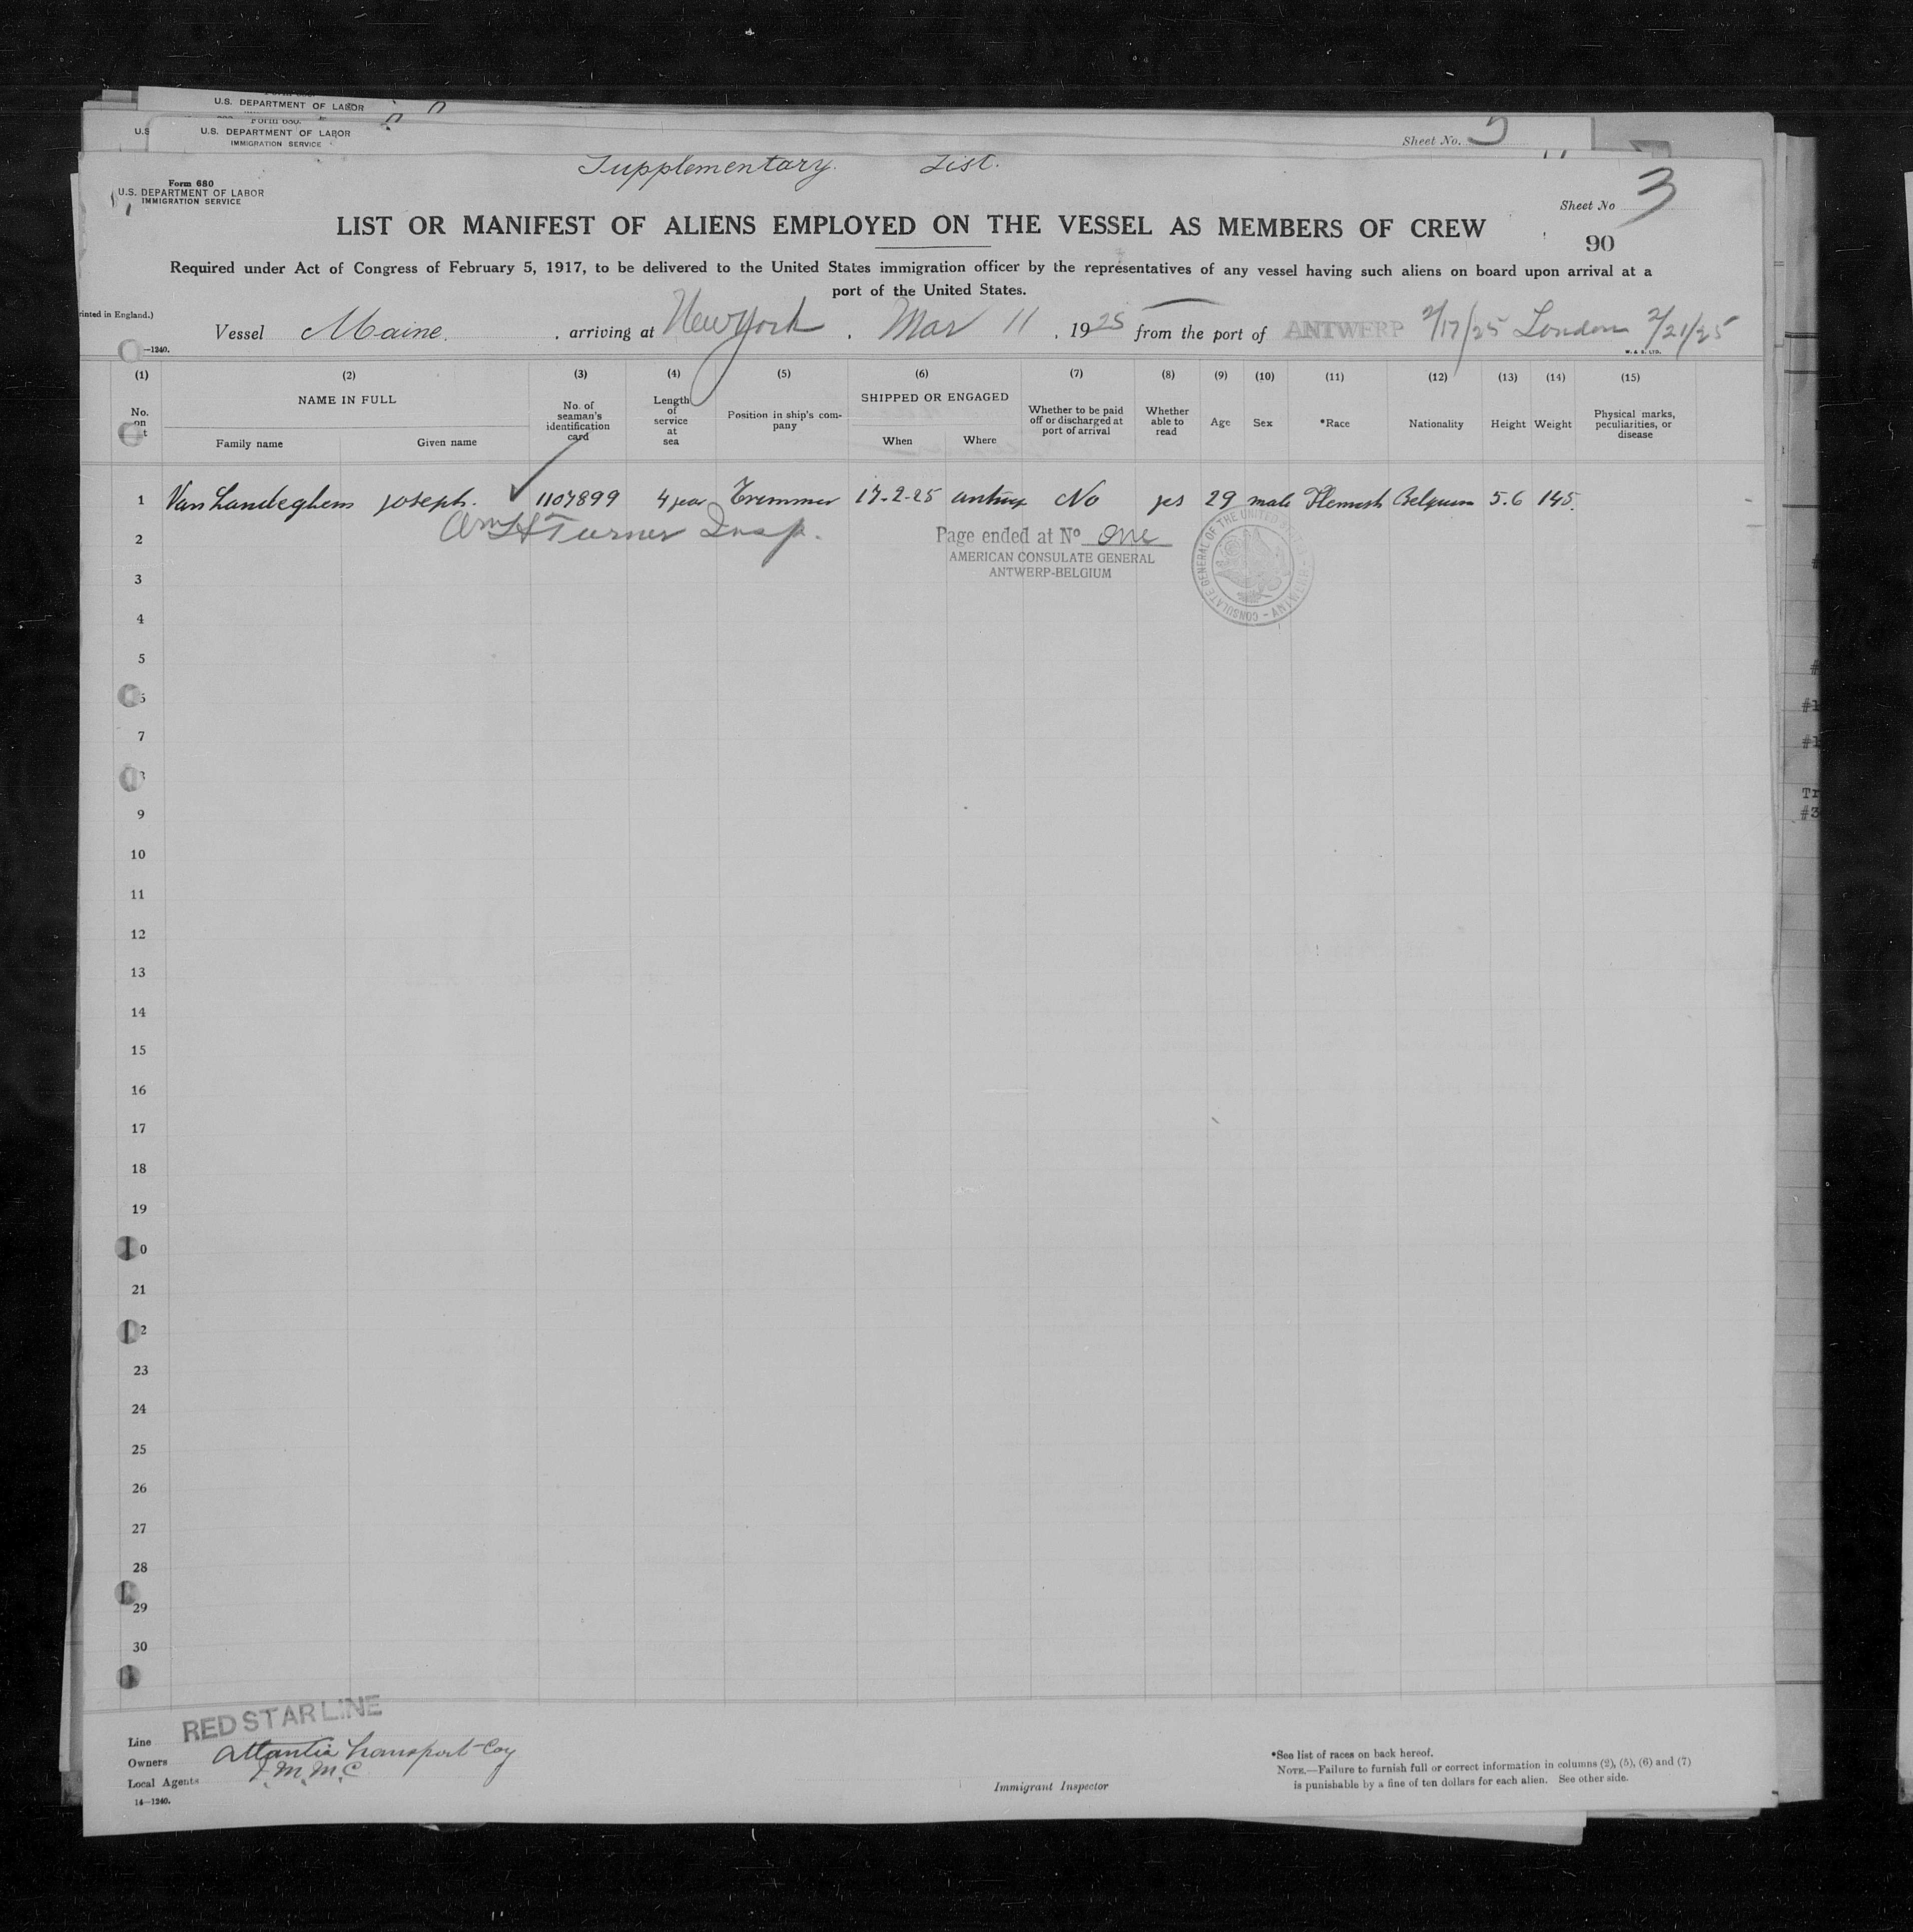 U.S. DEPARTMENT OF LABOR
Form 680.
U.S. DEPARTMENT OF LABOR
IMMIGRATION SERVICE
Sheet No.
Supplementary List.
Form 680
U.S. DEPARTMENT OF LABOR
IMMIGRATION SERVICE
Sheet No 3
LIST OR MANIFEST OF ALIENS EMPLOYED ON THE VESSEL AS MEMBERS OF CREW
90
Required under Act of Congress of February 5, 1917, to be delivered to the United States immigration officer by the representatives of any vessel having such aliens on board upon arrival at a
port of the United States.
rinted in England.)
Vessel Maine. , arriving at New York , Mar 11 , 1925 from the port of ANTWERP 2/17/25 London 2/21/25
—1240.
W. & S. LTD.
(1) (2) (3) (4) (5) (6) (7) (8) (9) (10) (11) (12) (13) (14) (15)
No. on
NAME IN FULL
Family name Given name
No. of seaman's identification card
Length of service at sea
Position in ship's company
SHIPPED OR ENGAGED
When Where
Whether to be paid off or discharged at port of arrival
Whether able to read
Age Sex *Race Nationality Height Weight
Physical marks, peculiarities, or disease
1 Van Landeghem Joseph. 1107899 4 year Tremmer 17-2-25 antwp No yes 29 male Flemish Belgium 5.6 145.
Wm H Turner Insp.
2
Page ended at No one
AMERICAN CONSULATE GENERAL
ANTWERP-BELGIUM
3
4
5
6
7
8
9
10
11
12
13
14
15
16
17
18
19
0
21
2
23
24
25
26
27
28
29
30
RED STAR LINE
Line
Owners Atlantic Transport Coy
Local Agents I.M.M.C
14—1240.
Immigrant Inspector
*See list of races on back hereof.
NOTE.—Failure to furnish full or correct information in columns (2), (5), (6) and (7)
is punishable by a fine of ten dollars for each alien. See other side.